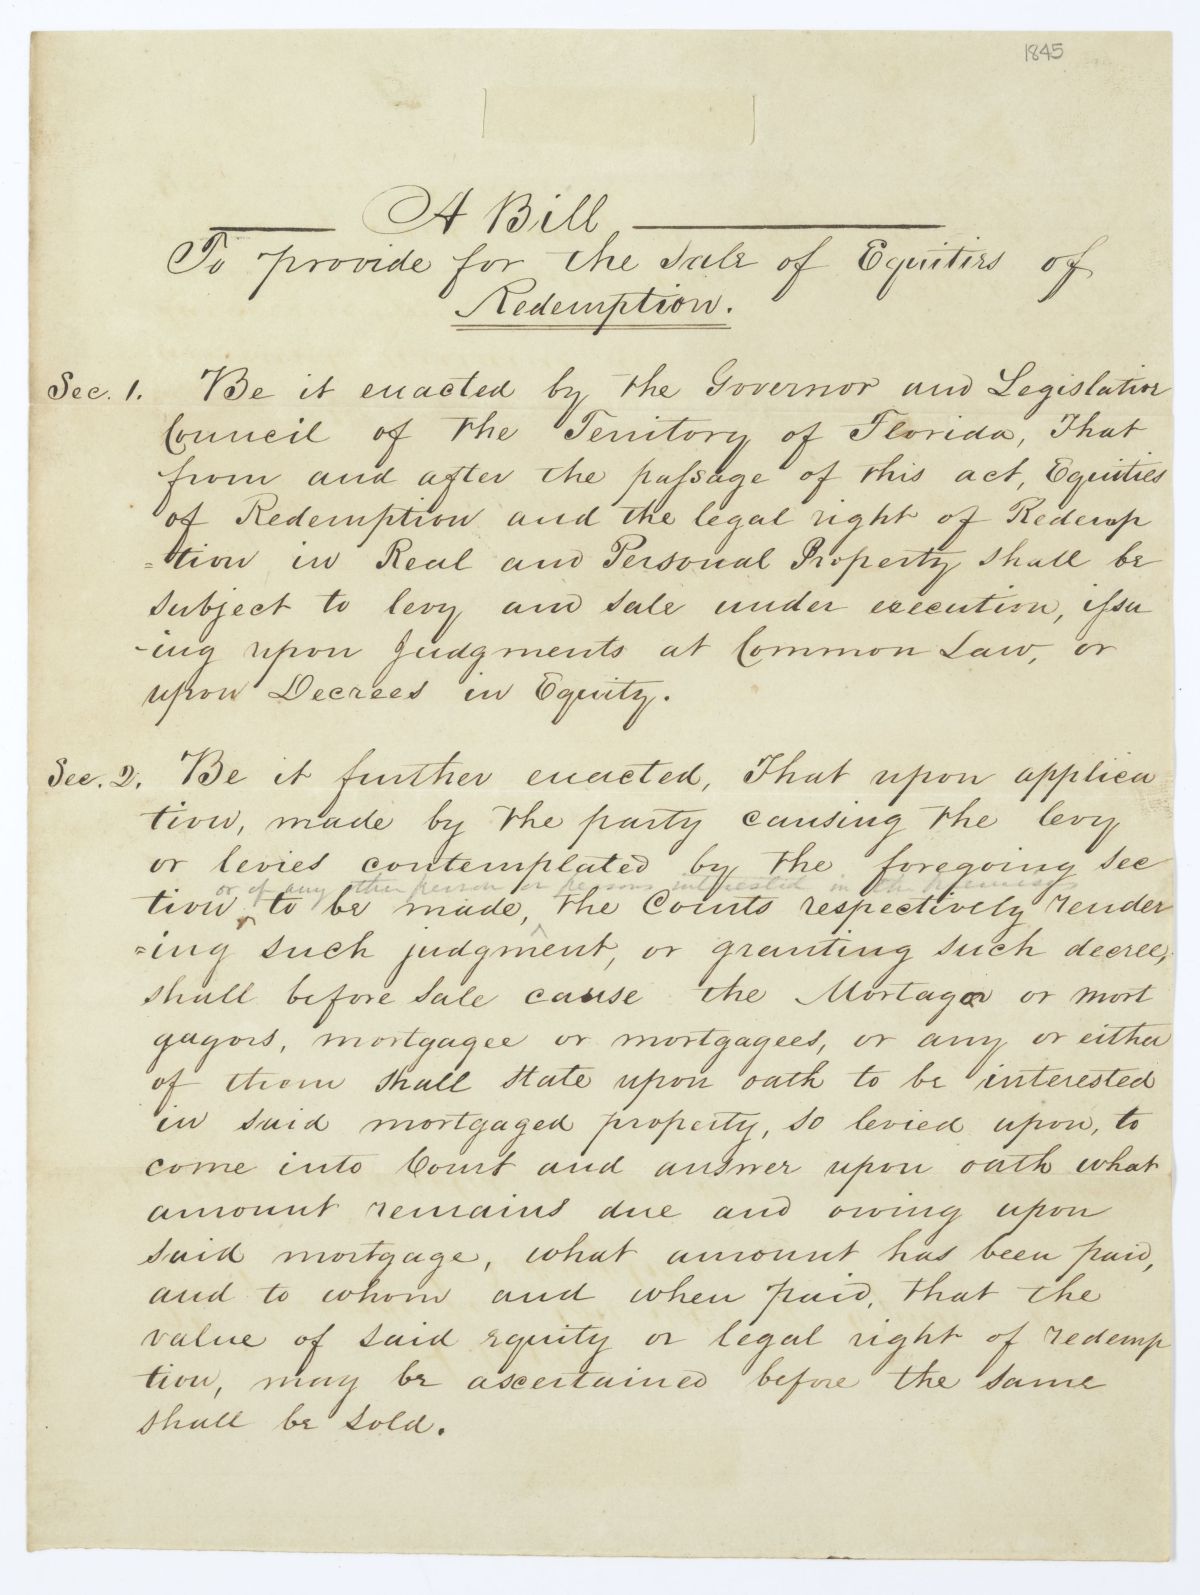 1845
A Bill
To provide for the Sale of Equities of
Redemption.
Sec. 1. Be it enacted by the Governor and Legislative
Council of the Territory of Florida, That
from and after the passage of this act, Equities
of Redemption and the legal right of Redemp
=tion in Real and Personal Property shall be
subject to levy and sale under execution, issu
-ing upon Judgments at Common Law, or
upon Decrees in Equity.
Sec. 2. Be it further enacted, That upon applica
tion, made by the party causing the levy
or levies contemplated by the foregoing sec
or of any other person or persons interested in the premises
tion to be made, the Courts respectively render
=ing such judgment, or granting such decree,
shall before sale cause the Mortagor or mort
gagors, mortgagee or mortgagees, or any or either
of them shall state upon oath to be interested
in said mortgaged property, so levied upon, to
come into Court and answer upon oath what
amount remains due and owing upon
said mortgage, what amount has been paid,
and to whom and when paid, that the
value of said equity or legal right of redemp
tion, may be ascertained before the same
shall be sold.